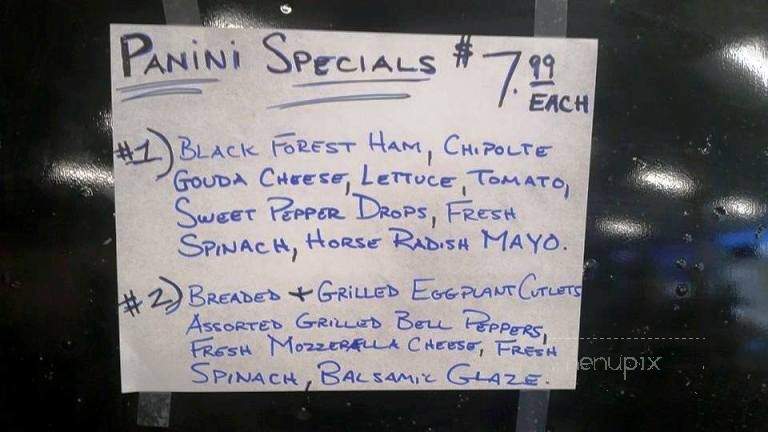 PANINI SPECIALS # 7.99
EACH
#1) BLACK FOREST HAM, CHIPOLTE
GOUDA CHEESE, LETTUCE, TOMATO,
SWEET PEPPER DROPS, FRESH
SPINACH, HORSE RADISH MAYO.
#2) BREADED + GRILLED EGGPLANT CUTLETS
ASSORTED GRILLED BELL PEPPERS,
FRESH MOZZERELLA CHEESE, FRESH
SPINACH, BALSAMIC GLAZE.
menupix